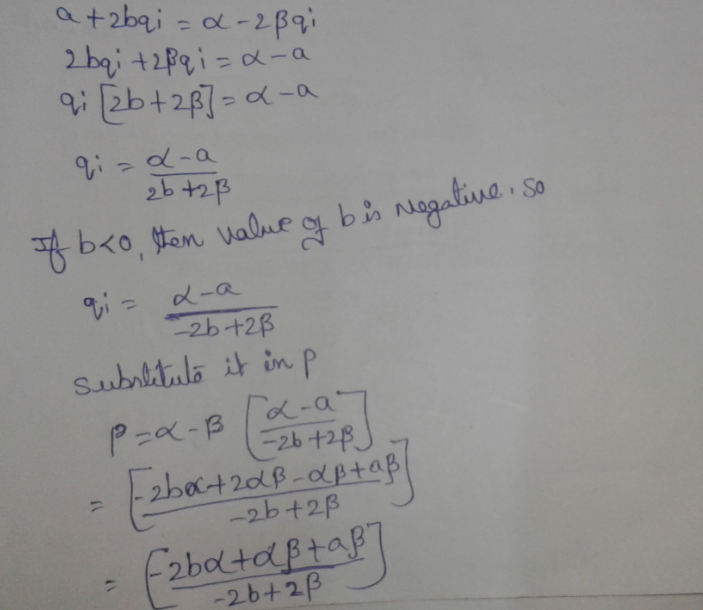 a + 2bqi = α - 2βqi
2bqi + 2βqi = α - a
qi [2b + 2β] = α - a
qi = α - a / 2b + 2β
If b < 0, then value of b is Negative. So
qi = α - a / -2b + 2β
Substitute it in P
P = α - β [α - a / -2b + 2β]
= [-2bα + 2αβ - αβ + aβ / -2b + 2β]
= [-2bα + αβ + aβ / -2b + 2β]